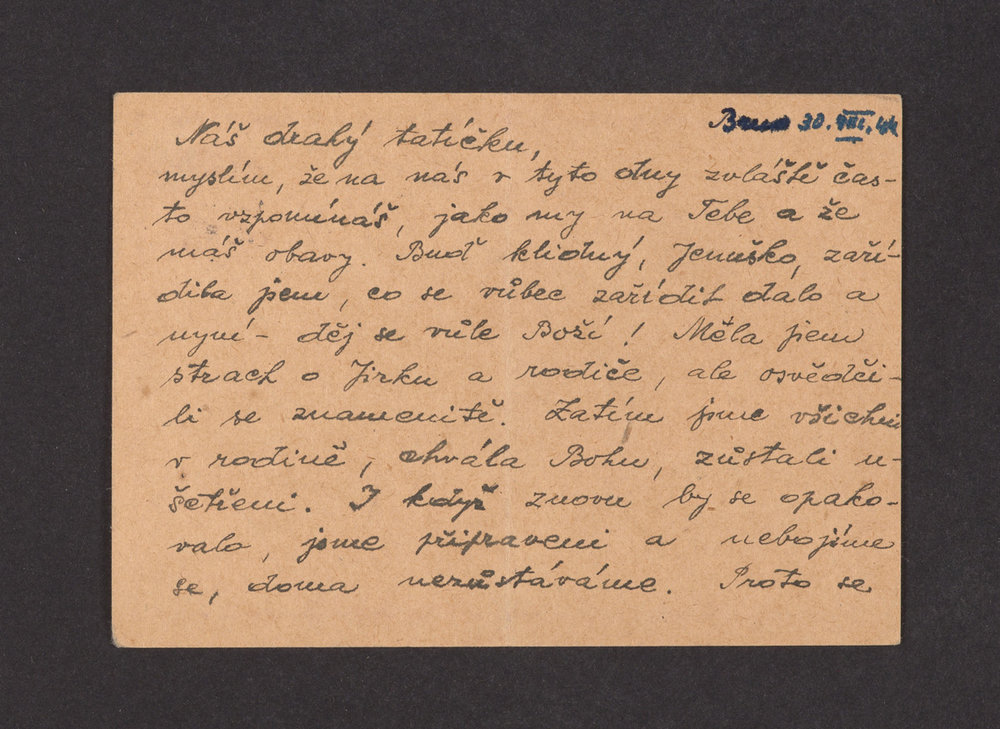 Brno 30. VIII. 44
Náš drahý tatíčku,
myslím, že na nás v tyto dny zvláště čas-
to vzpomínáš, jako my na Tebe a že
máš obavy. Buď klidný, Jeníško, zaří-
dila jsem, co se vůbec zařídit dalo a
nyní - děj se vůle Boží! Měla jsem
strach o Jirku a rodiče, ale osvědči-
li se znamenitě. Zatím jsme všichni
v rodině, chvála Bohu, zůstali u-
šetřeni. I když znovu by se opako-
valo, jsme připraveni a nebojíme
se, doma nezůstáváme. Proto se